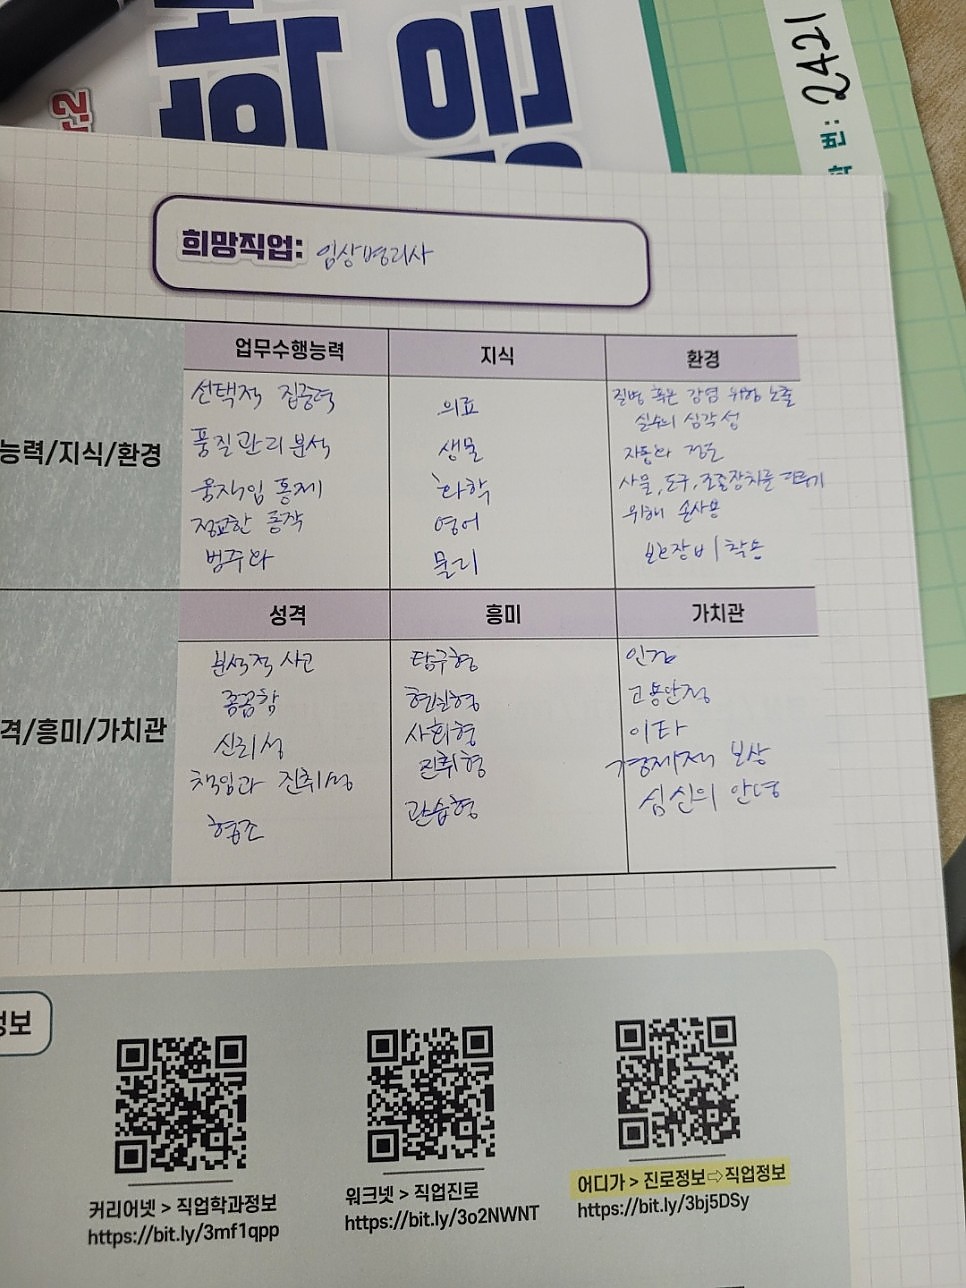 학 번: 2421
희망직업: 임상병리사
업무수행능력 지식 환경
능력/지식/환경
선택적 집중력
품질관리분석
움직임 통제
정교한 동작
범주화
의료
생물
화학
영어
물리
질병 혹은 감염 위험 노출
실수의 심각성
자동화 정도
사물, 도구, 조종장치를 다루기
위해 손사용
보호장비 착용
성격 흥미 가치관
격/흥미/가치관
분석적 사고
꼼꼼함
신뢰성
책임과 진취성
협조
탐구형
현실형
사회형
진취형
관습형
인정
고용안정
이타
경제적 보상
심신의 안녕
정보
커리어넷 > 직업학과정보
https://bit.ly/3mf1qpp
워크넷 > 직업진로
https://bit.ly/3o2NWNT
어디가 > 진로정보⇨직업정보
https://bit.ly/3bj5DSy